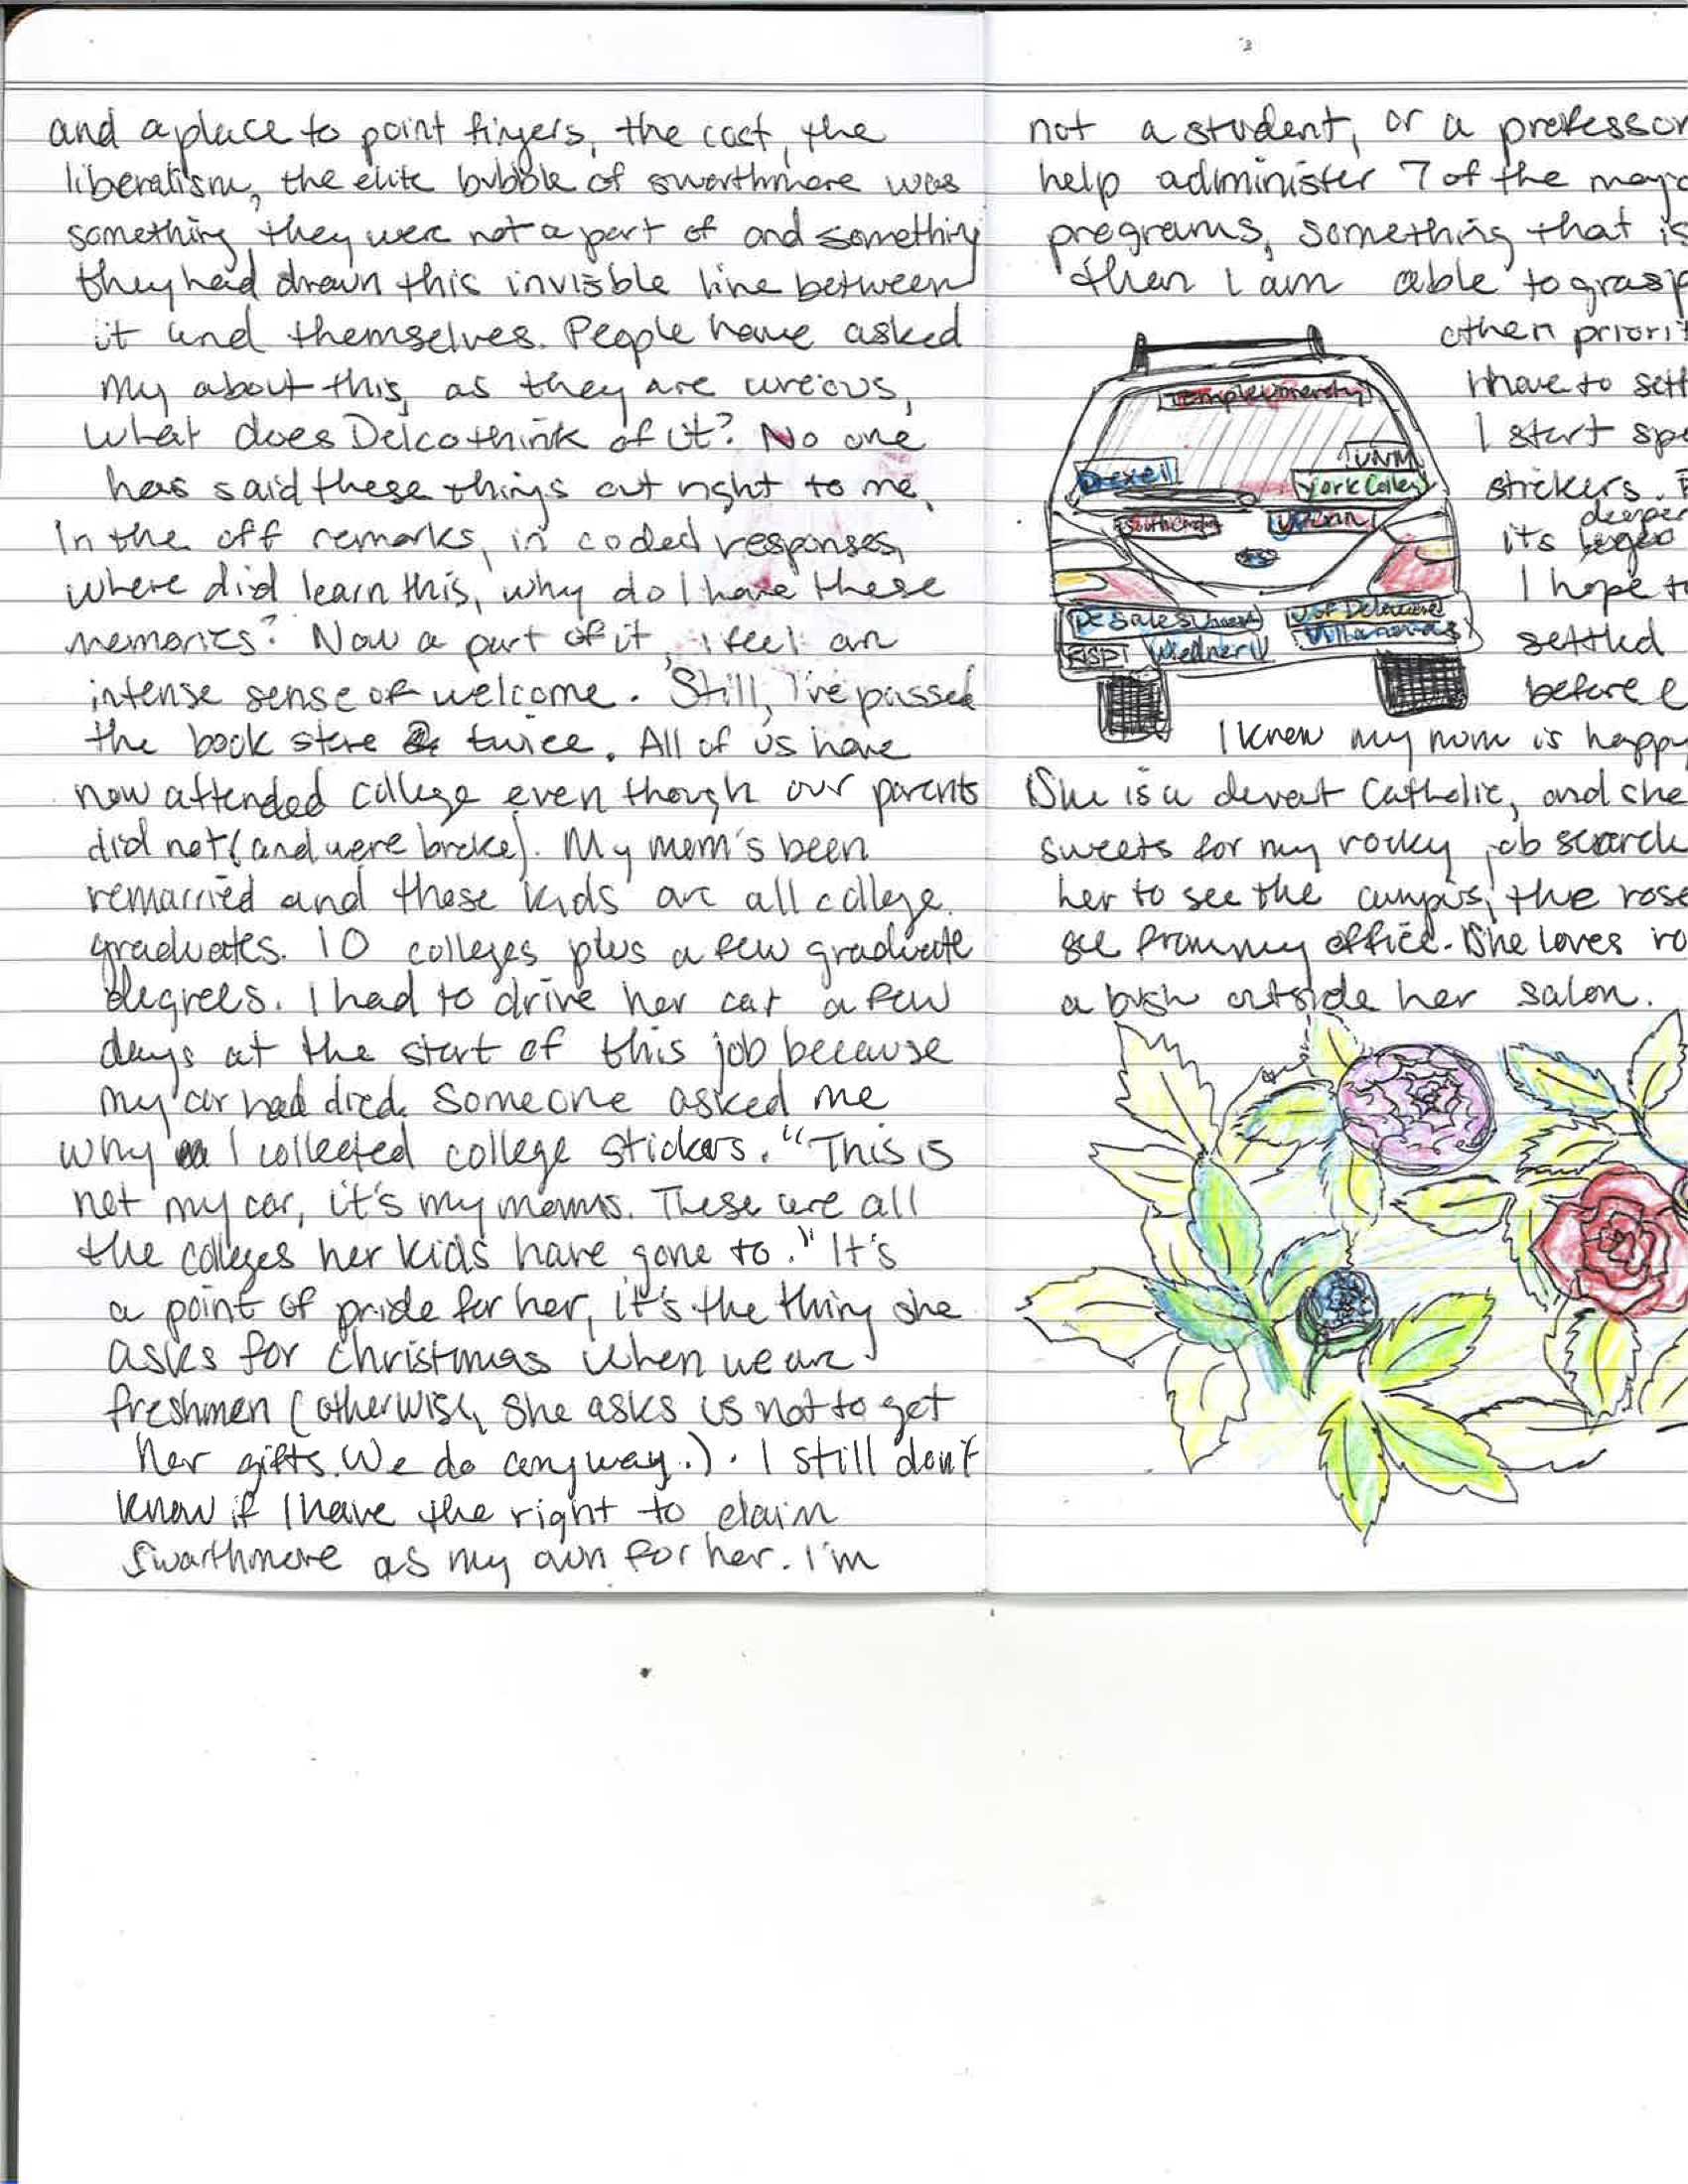 and a place to point fingers, the cost, the
liberalism, the elite bubble of swarthmore was
something they were not a part of and something
they had drawn this invisible line between
it and themselves. People have asked
my about this, as they are cureous,
what does Delco think of it? No one
has said these things out right to me.
In the off remarks, in coded responses,
where did learn this, why do I have these
memories? Now a part of it, i feel an
intense sense of welcome. Still, I've passed
the book store twice. All of us have
now attended college even though our parents
did not (and were broke). My mom's been
remarried and those kids are all college
graduates. 10 colleges plus a few graduate
degrees. I had to drive her car a few
days at the start of this job because
my car had died. Someone asked me
why I collected college stickers. "This is
not my car, it's my moms. These are all
the colleges her kids have gone to." It's
a point of pride for her, it's the thing she
asks for Christmas when we are
freshmen (otherwise, she asks is not to get
her gifts. We do anyway.). I still don't
know if I have the right to claim
Swarthmore as my own for her. I'm
not a student, or a professor
help administer 7 of the
programs, something that is
then I am able to
other
I have to
I start
stickers.
deeper
its
I hope
settled
before
I know my mom is happy
She is a devout Catholic, and she
sweets for my rocky job search
her to see the campus, the
see from my office. She loves
a bush outside her salon.
Temple University
UNM
Drexel
York College
DeSales
U of Delaware
Villanova
Widner U